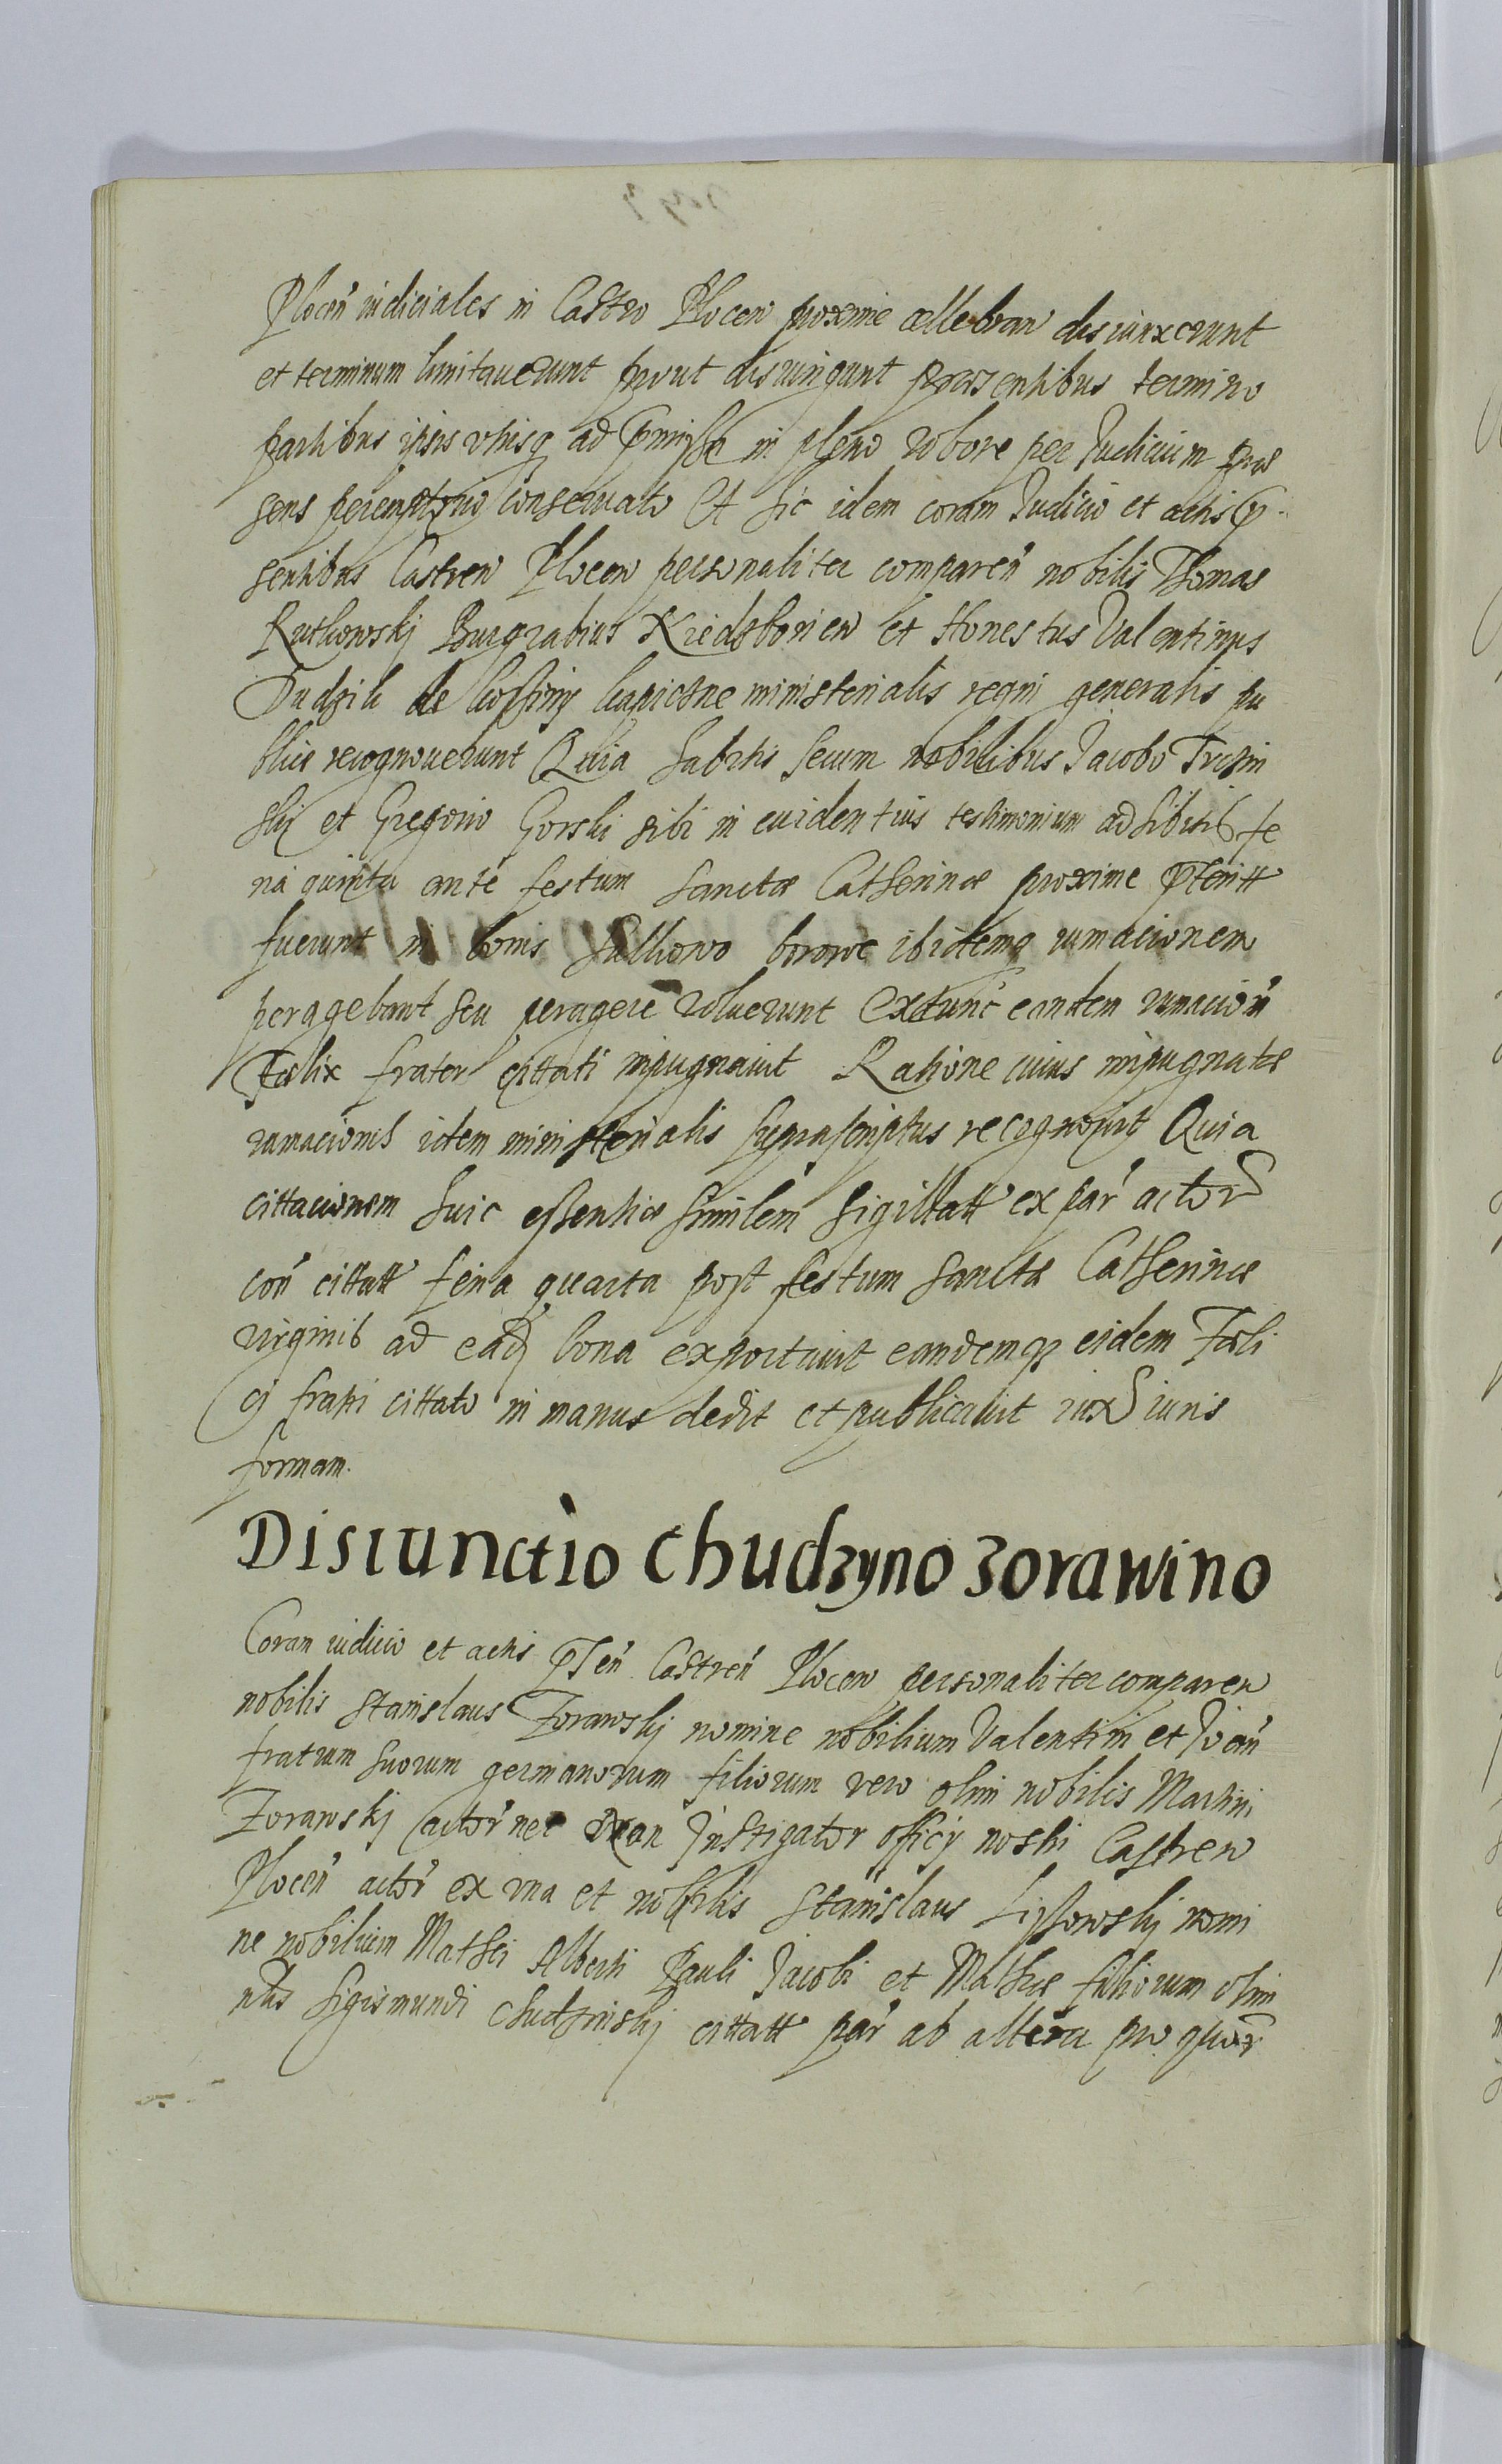 Plocen̄ iudiciales in Castro Plocen proxime cellebran disiunxerunt
et terminum limitauerunt prout disiungunt praesentibus termino
partibus ipsis vtrisq ad p̄missa in pleno robore per Judicium prae
sens peremptorio conseruato Et sic idem coram Judicio et actis p̄
sentibus Castren Plocen personaliter comparen̄ nobilis Thomas
Rutkowskj Burgrabius Niedzborien et Honestus Valentinus
Dudzik de ministerialis regni generalis pu
blice recognouerunt Quia habitis secum nobilibus Jacobo Trzcin
skj et Gregorio Gorski sibi in euidentius testimonium adhibitis fe
ria quinta ante festum sanctae Catherinae proxime p̄teritt
fuerunt in bonis ibidemq rumacionem
peragebant seu peragere voluerunt Extunc eandem rumacion̄
Faelix frater cittati inpugnauit Ratione cuius inpugnatae
rumacionis idem ministerialis suprascriptus recognouit Quia
cittacionem huic essentiae similem sigillatt ex par̄ actor
con̄ cittatt feria quarta post festum sanctae Catherinae
virginis ad ead bona exportauit eandemq eidem Faeli
cj fratri cittato in manus dedit et publicauit iux iuris
formam.
Disiunctio Chudzyno Zorawino
Coran iudicio et actis p̄sen̄ Castren̄ Plocen personaliter comparen
nobilis Stanislaus Zorawskj nomine nobilium Valentini et Joan̄
fratrum suorum germanorum filiorum vero olim nobilis Martini
Zorawskj actor̄ nec non Instigator officij nostri Castren
Plocen̄ actor̄ ex vna et nobilis Stanislaus Lipsowskj nomi
ne nobilium Mathei Alberti Pauli Jacobi et Mathiae filiorum olim
nlis Sigismundi Chudzinskj cittatt par̄ ab altera pro quar